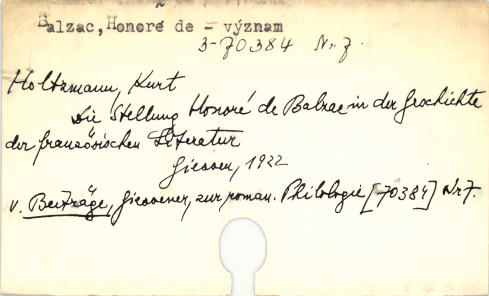 Balzac, Honoré de - význam
3-70384 Nr 7.
Holtzmann, Kurt
Die Stellung Honoré de Balzac in der Geschichte
der französischen Literatur
Giessen, 1922
v. Beiträge, Giessener, zur roman. Philologie [70384] Nr 7.